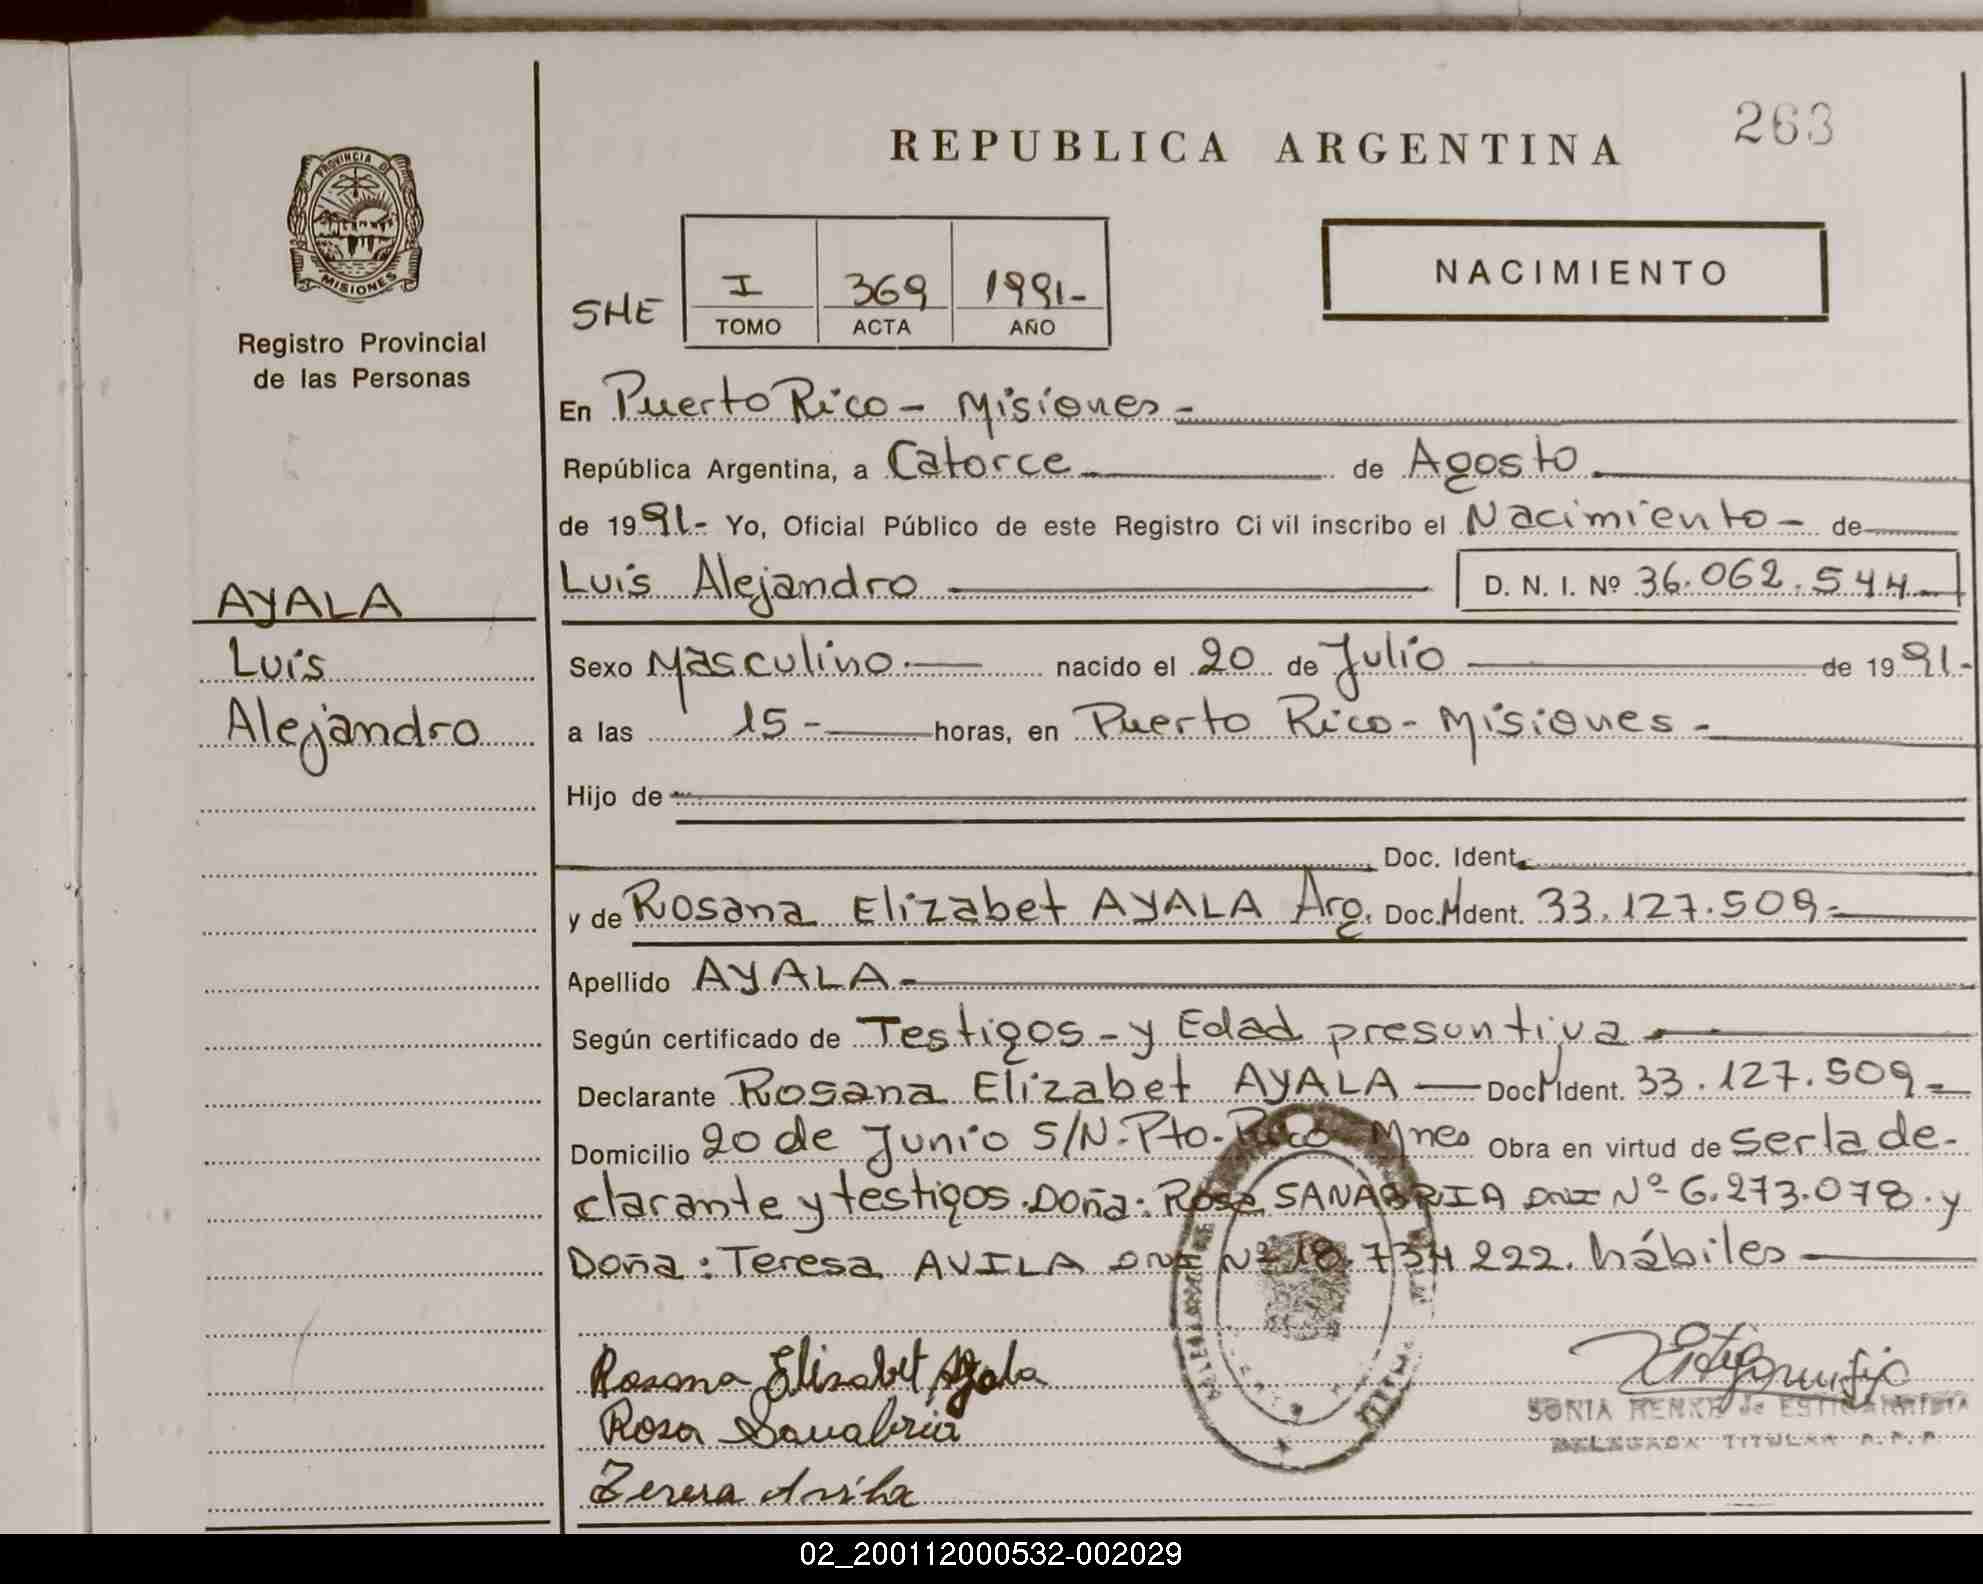 REPUBLICA ARGENTINA
263
PROVINCIA DE
MISIONES
Registro Provincial
de las Personas
SHE
I 369 1991-
TOMO ACTA AÑO
NACIMIENTO
En Puerto Rico - Misiones -
República Argentina, a Catorce de Agosto
de 1991.- Yo, Oficial Público de este Registro Civil inscribo el Nacimiento - de
Luis Alejandro D. N. I. Nº 36.062.544
AYALA
Luis
Alejandro
Sexo Masculino nacido el 20 de Julio de 1991.-
a las 15 - horas, en Puerto Rico - Misiones -
Hijo de
Doc. Ident.
y de Rosana Elizabet AYALA Arg. Doc. Ident. 33.127.509-
Apellido AYALA-
Según certificado de Testigos - y Edad presuntiva
Declarante Rosana Elizabet AYALA Doc Ident. 33.127.509-
Domicilio 20 de Junio S/N. Pto. Rico Mnes Obra en virtud de ser la de-
clarante y testigos. Doña: Rosa SANABRIA DNI Nº 6.273.078. y
Doña: Teresa AVILA DNI Nº 18.734.222. hábiles
Rosana Elisabet Ayala
Rosa Sanabria
Teresa Avila
SONIA HENKE de
DELEGADA TITULAR R.P.P.
02_200112000532-002029